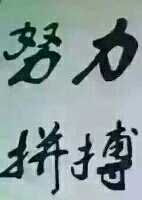 努力
拼搏